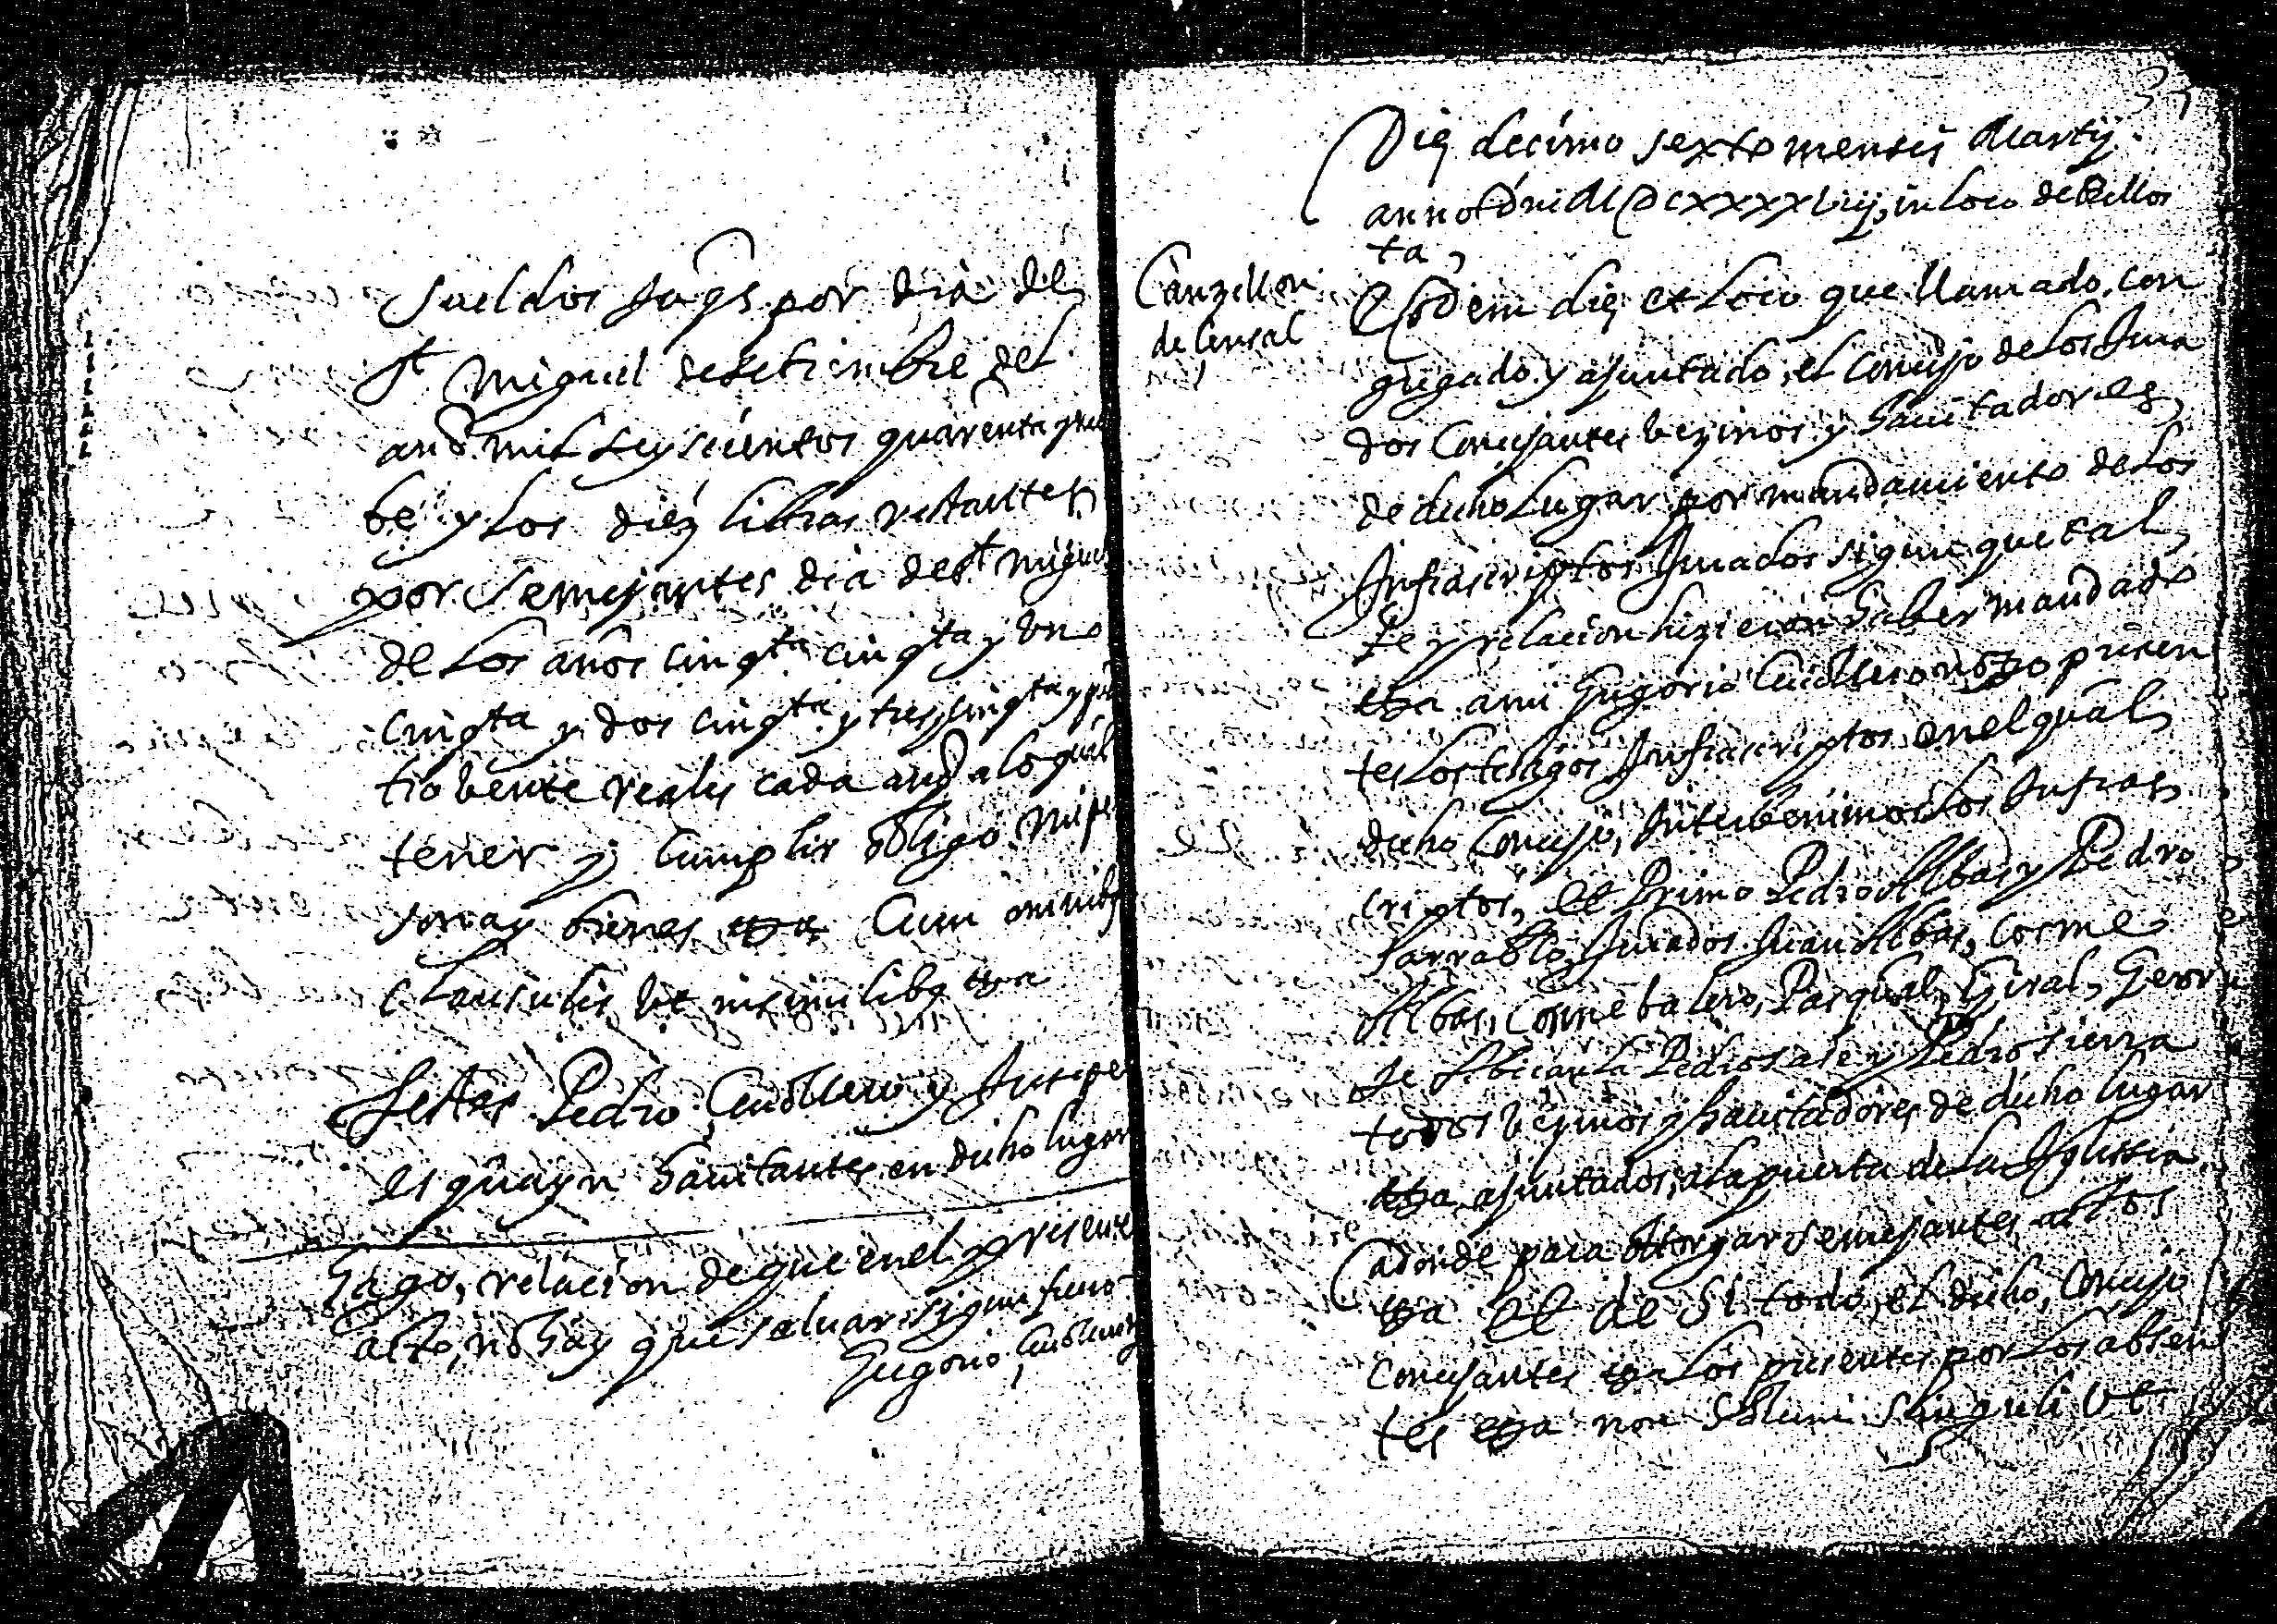 sueldos Jaqs. por dia de
St Miguel de setiembre del
año mil seyscientos quarenta y nue
be y los diez libras restantes
por semejantes dia de St Miguel
de los años cinqta cinqta y uno
cinqta y dos cinqta y tres cinqta y qua
tro bente reales cada año a lo qual
tener y cumplir obligo mi per
sona y bienes etza Cum omnibs
clausulis ut in similibs etza
Testes Pedro Cudllero y Jusepe
habitantes en dicho lugar
Hago, relacion de que en el presente
acto, no hay que saluar sigun fuero
Gregorio
Die decimo sexto mensis Martij
anno Dni M DCXXXXVIIIJ, in loco de Billos
ta,
Canzillon
de Censal
Eodem die et loco que llamado, con
gregado y ajuntado, el Concejo de los Jura
dos Concejantes bezinos y hauitadores
de dicho Lugar por mandamiento de los
Infrascriptos Jurados sigun que tal
fe y relacion hizieron haber mandado
etza a mi Gregorio Cudllero presen
tes los testigos Infrascriptos en el qual
dicho Concejo, Interbenimos los Infras
criptos, Et Primo Pedro Albas y Pedro
Sarrablo Jurados Juan Albas, Cosme
Albas, Cosme balero, Pasqual Giral, Geor
je Abicanla Pedro sasе y Pedro sierra
todos bezinos y hauitadores de dicho lugar
etza ajuntados, a la puerta de la Iglessia
adonde para otorgar semejantes actos
etza Et de si todo, el dicho, Concejo
Concejantes etza los presentes por los absen
tes etza non solum singuli ut